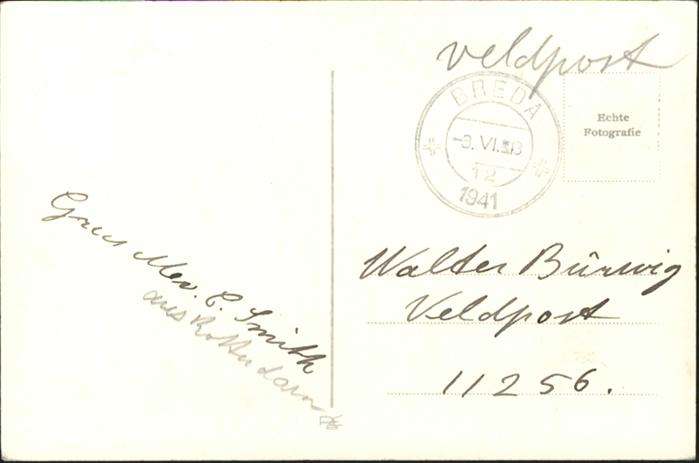 veldpost
BREDA
VI.
12
1941
Echte
Fotografie
Mev. C. Smith
aus Rotterdam
Walter Bürwig
Veldpost
11256.